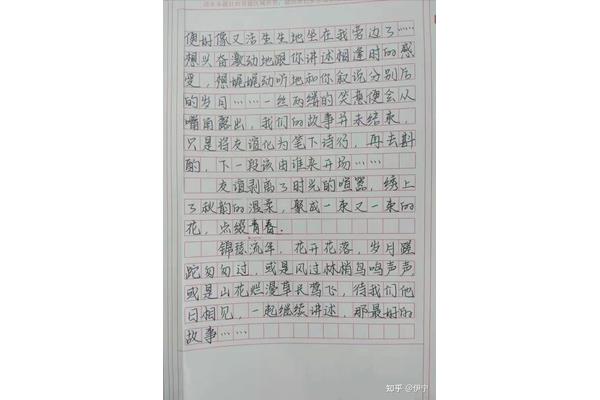 便好像又活生生地坐在我旁边了……
想兴奋激动地跟你讲述相逢时的感
受，想娓娓动听地和你叙说分别后
的岁月……一丝两缕的笑意便会从
嘴角露出，我们的故事并未结束，
只是将友谊化为笔下诗行，再去斟
酌，下一段该由谁来开场……
友谊剥离了时光的喧嚣，绣上
了秋韵的温柔，聚成一束又一束的
花，点缀青春。
锦瑟流年，花开花落，岁月蹉
跎匆匆过，或是风过林梢鸟鸣声声
或是山花烂漫草长莺飞，待我们他
日相见，一起继续讲述，那最好的
故事……
知乎 @伊宁